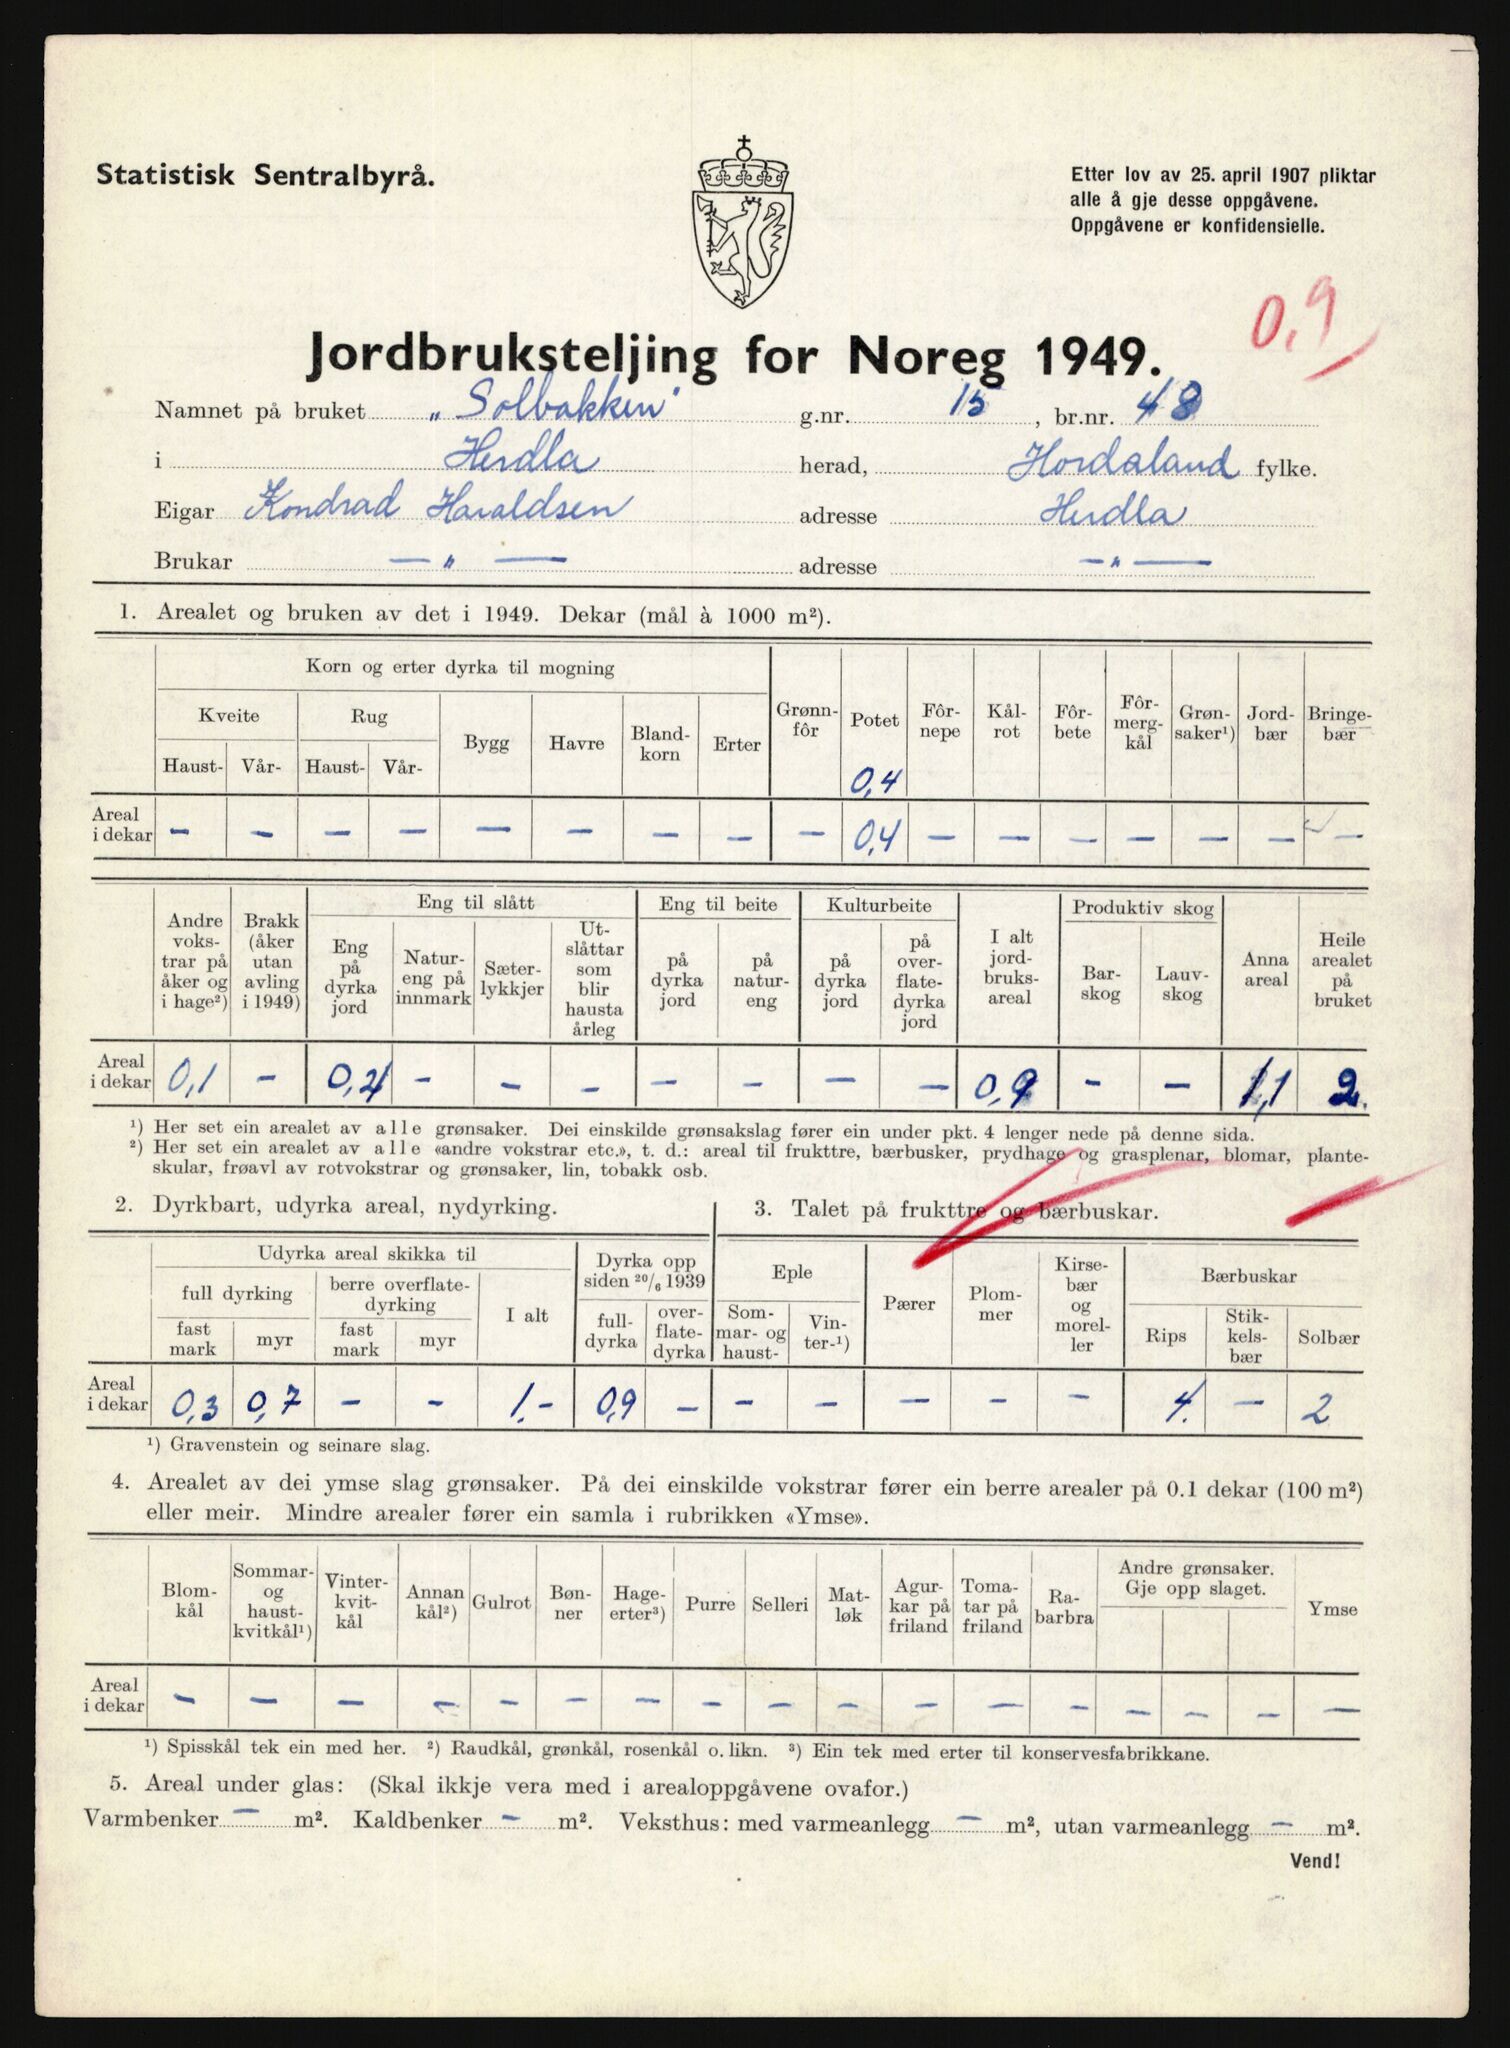 Statistisk Sentralbyrå.
Etter lov av 25. april 1907 pliktar
alle å gje desse oppgåvene.
Oppgåvene er konfidensielle.
0,9
Jordbruksteljing for Noreg 1949.
Namnet på bruket „Solbakken" g.nr. 15, br.nr. 48
i Herdla herad, Hordaland fylke.
Eigar Kondrad Haraldsen adresse Herdla
Brukar — „ — adresse — „ —
1. Arealet og bruken av det i 1949. Dekar (mål à 1000 m²).
Korn og erter dyrka til mogning
Kveite Rug Bygg Havre Bland-korn Erter Grønn-fôr Potet Fôr-nepe Kål-rot Fôr-bete Fôr-merg-kål Grøn-saker¹) Jord-bær Bringe-bær
Haust- Vår- Haust- Vår-
0,4
Areal i dekar — — — — — — — — — 0,4 — — — — — — —
Eng til slått Eng til beite Kulturbeite Produktiv skog
Andre voks-trar på åker og i hage²) Brakk (åker utan avling i 1949) Eng på dyrka jord Natur-eng på innmark Sæter-lykkjer Ut-slåttar som blir hausta årleg på dyrka jord på natur-eng på dyrka jord på over-flate-dyrka jord I alt jord-bruks-areal Bar-skog Lauv-skog Anna areal Heile arealet på bruket
Areal i dekar 0,1 — 0,4 — — — — — — — 0,9 — — 1,1 2.
¹) Her set ein arealet av alle grønsaker. Dei einskilde grønsakslag fører ein under pkt. 4 lenger nede på denne sida.
²) Her set ein arealet av alle «andre vokstrar etc.», t. d.: areal til frukttre, bærbusker, prydhage og grasplenar, blomar, plante-
skular, frøavl av rotvokstrar og grønsaker, lin, tobakk osb.
2. Dyrkbart, udyrka areal, nydyrking.
3. Talet på frukttre og bærbuskar.
Udyrka areal skikka til Dyrka opp siden 20/6 1939 Eple Pærer Plom-mer Kirse-bær og morel-ler Bærbuskar
full dyrking berre overflate-dyrking I alt full-dyrka over-flate-dyrka Som-mar- og haust- Vin-ter-¹) Rips Stik-kels-bær Solbær
fast mark myr fast mark myr
Areal i dekar 0,3 0,7 — — 1.- 0,9 — — — — — — 4. — 2
¹) Gravenstein og seinare slag.
4. Arealet av dei ymse slag grønsaker. På dei einskilde vokstrar fører ein berre arealer på 0.1 dekar (100 m²)
eller meir. Mindre arealer fører ein samla i rubrikken «Ymse».
Blom-kål Sommar- og haust-kvitkål¹) Vinter-kvit-kål Annan kål²) Gulrot Bøn-ner Hage-erter³) Purre Selleri Mat-løk Agur-kar på friland Toma-tar på friland Ra-barbra Andre grønsaker. Gje opp slaget. Ymse
Areal i dekar — — — — — — — — — — — — — — — — —
¹) Spisskål tek ein med her. ²) Raudkål, grønkål, rosenkål o. likn. ³) Ein tek med erter til konservesfabrikkane.
5. Areal under glas: (Skal ikkje vera med i arealoppgåvene ovafor.)
Varmbenker — m². Kaldbenker — m². Veksthus: med varmeanlegg — m², utan varmeanlegg — m².
Vend!